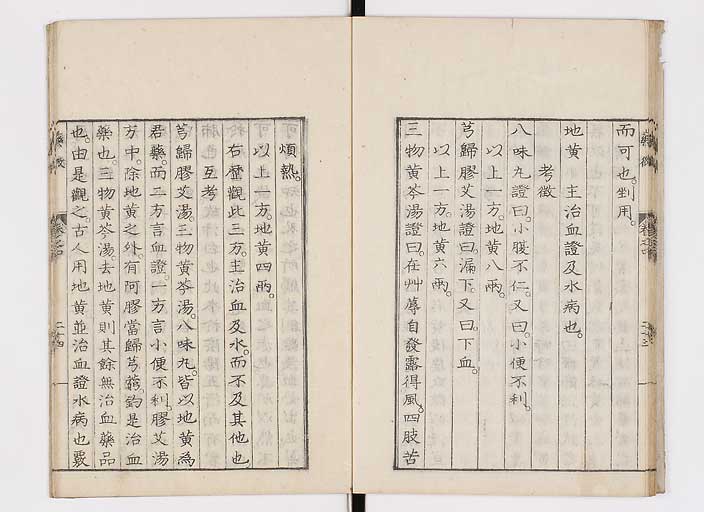 而可也。剉用。
地黄 主治血證及水病也。
考徵
八味丸證曰。小腹不仁。又曰。小便不利。
以上一方。地黄八兩。
芎歸膠艾湯證曰。漏下。又曰。下血。
以上一方。地黄六兩。
三物黄芩湯證曰。在艸蓐自發露得風。四肢苦
煩熱。
以上一方。地黄四兩。
右歷觀此三方。主治血及水。而不及其他也
互考
芎歸膠艾湯。三物黄芩湯。八味丸。皆以地黄為
君藥。而二方言血證。一方言小便不利。膠艾湯
方中。除地黄之外。有阿膠當歸芎藭。鈞是治血
藥也。三物黄芩湯。去地黄則其餘無治血藥品
也。由是觀之。古人用地黄並治血證水病也覈
藥徵
卷之
二十三
藥徵
卷之
二十四